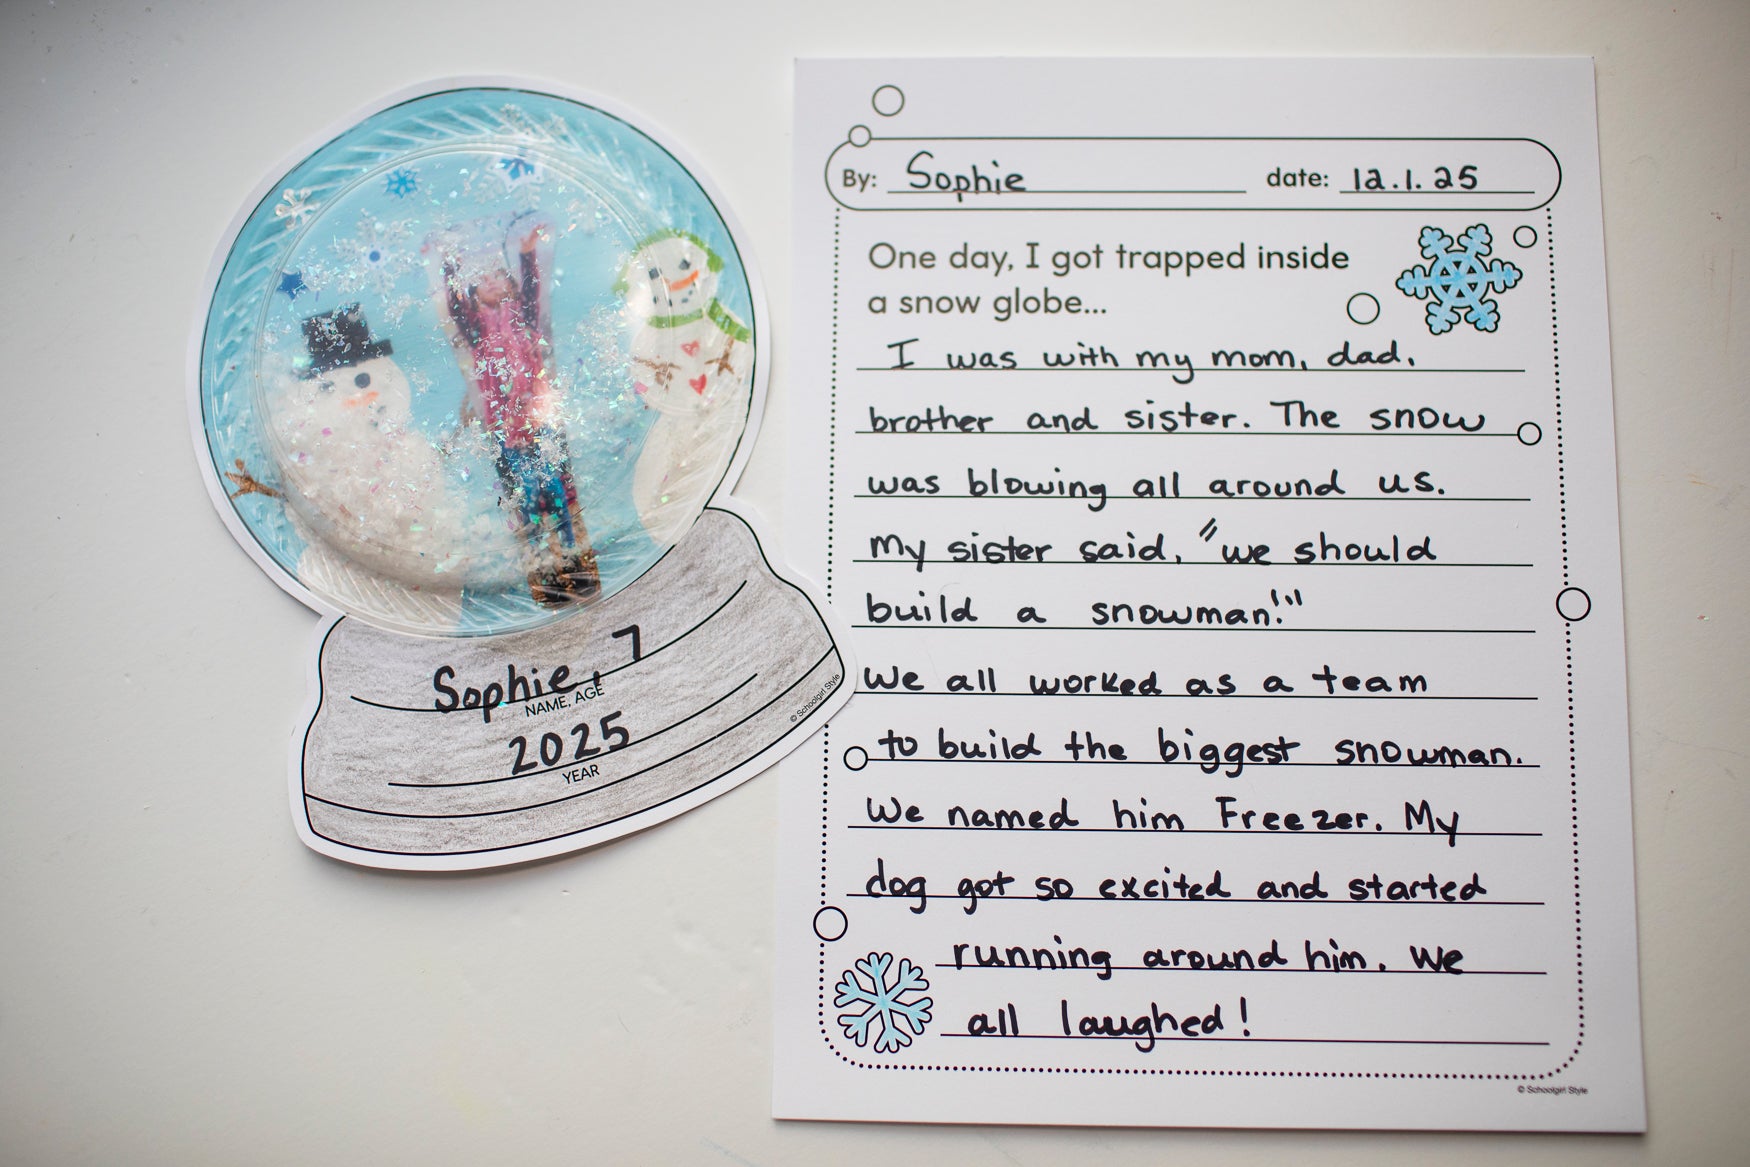 Sophie, 7
NAME, AGE
2025
YEAR
© Schoolgirl Style
By: Sophie date: 12.1.25
One day, I got trapped inside
a snow globe...
I was with my mom, dad,
brother and sister. The snow
was blowing all around us.
My sister said, "we should
build a snowman!"
We all worked as a team
to build the biggest snowman.
We named him Freezer. My
dog got so excited and started
running around him. We
all laughed!
© Schoolgirl Style